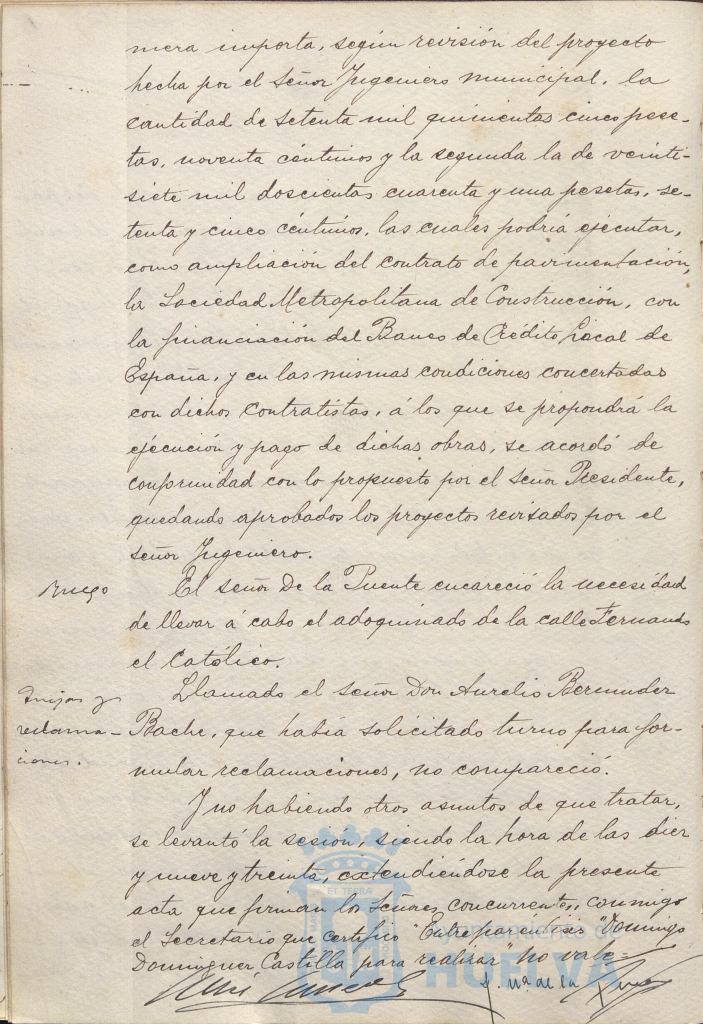 mera importa, según revisión del proyecto
hecha por el Señor Ingeniero municipal, la
cantidad de setenta mil quinientas cinco pese-
tas, noventa céntimos y la segunda la de veinti-
siete mil doscientas cuarenta y una pesetas, se-
tenta y cinco céntimos, las cuales podría ejecutar,
como ampliación del contrato de pavimentación,
la Sociedad Metropolitana de Construcción, con
la financiación del Banco de Crédito Local de
España, y en las mismas condiciones concertadas
con dichos contratistas, á los que se propondrá la
ejecución y pago de dichas obras, se acordó de
conformidad con lo propuesto por el señor Presidente,
quedando aprobados los proyectos revisados por el
señor Ingeniero.
Ruego
El señor De la Puente encareció la necesidad
de llevar á cabo el adoquinado de la calle Fernando
el Católico.
Quejas y
reclama-
ciones.
Llamado el señor Don Aurelio Bermudez
Bache, que había solicitado turno para for-
mular reclamaciones, no compareció.
Y no habiendo otros asuntos de que tratar,
se levantó la sesión, siendo la hora de las diez
y nueve y treinta, extendiéndose la presente
acta que firman los Señores concurrentes, conmigo
el Secretario que certifico "Entre paréntisis "Domingo
Dominguez Castilla para realizar" No vale=
de la
ET TERRA
HUELVA